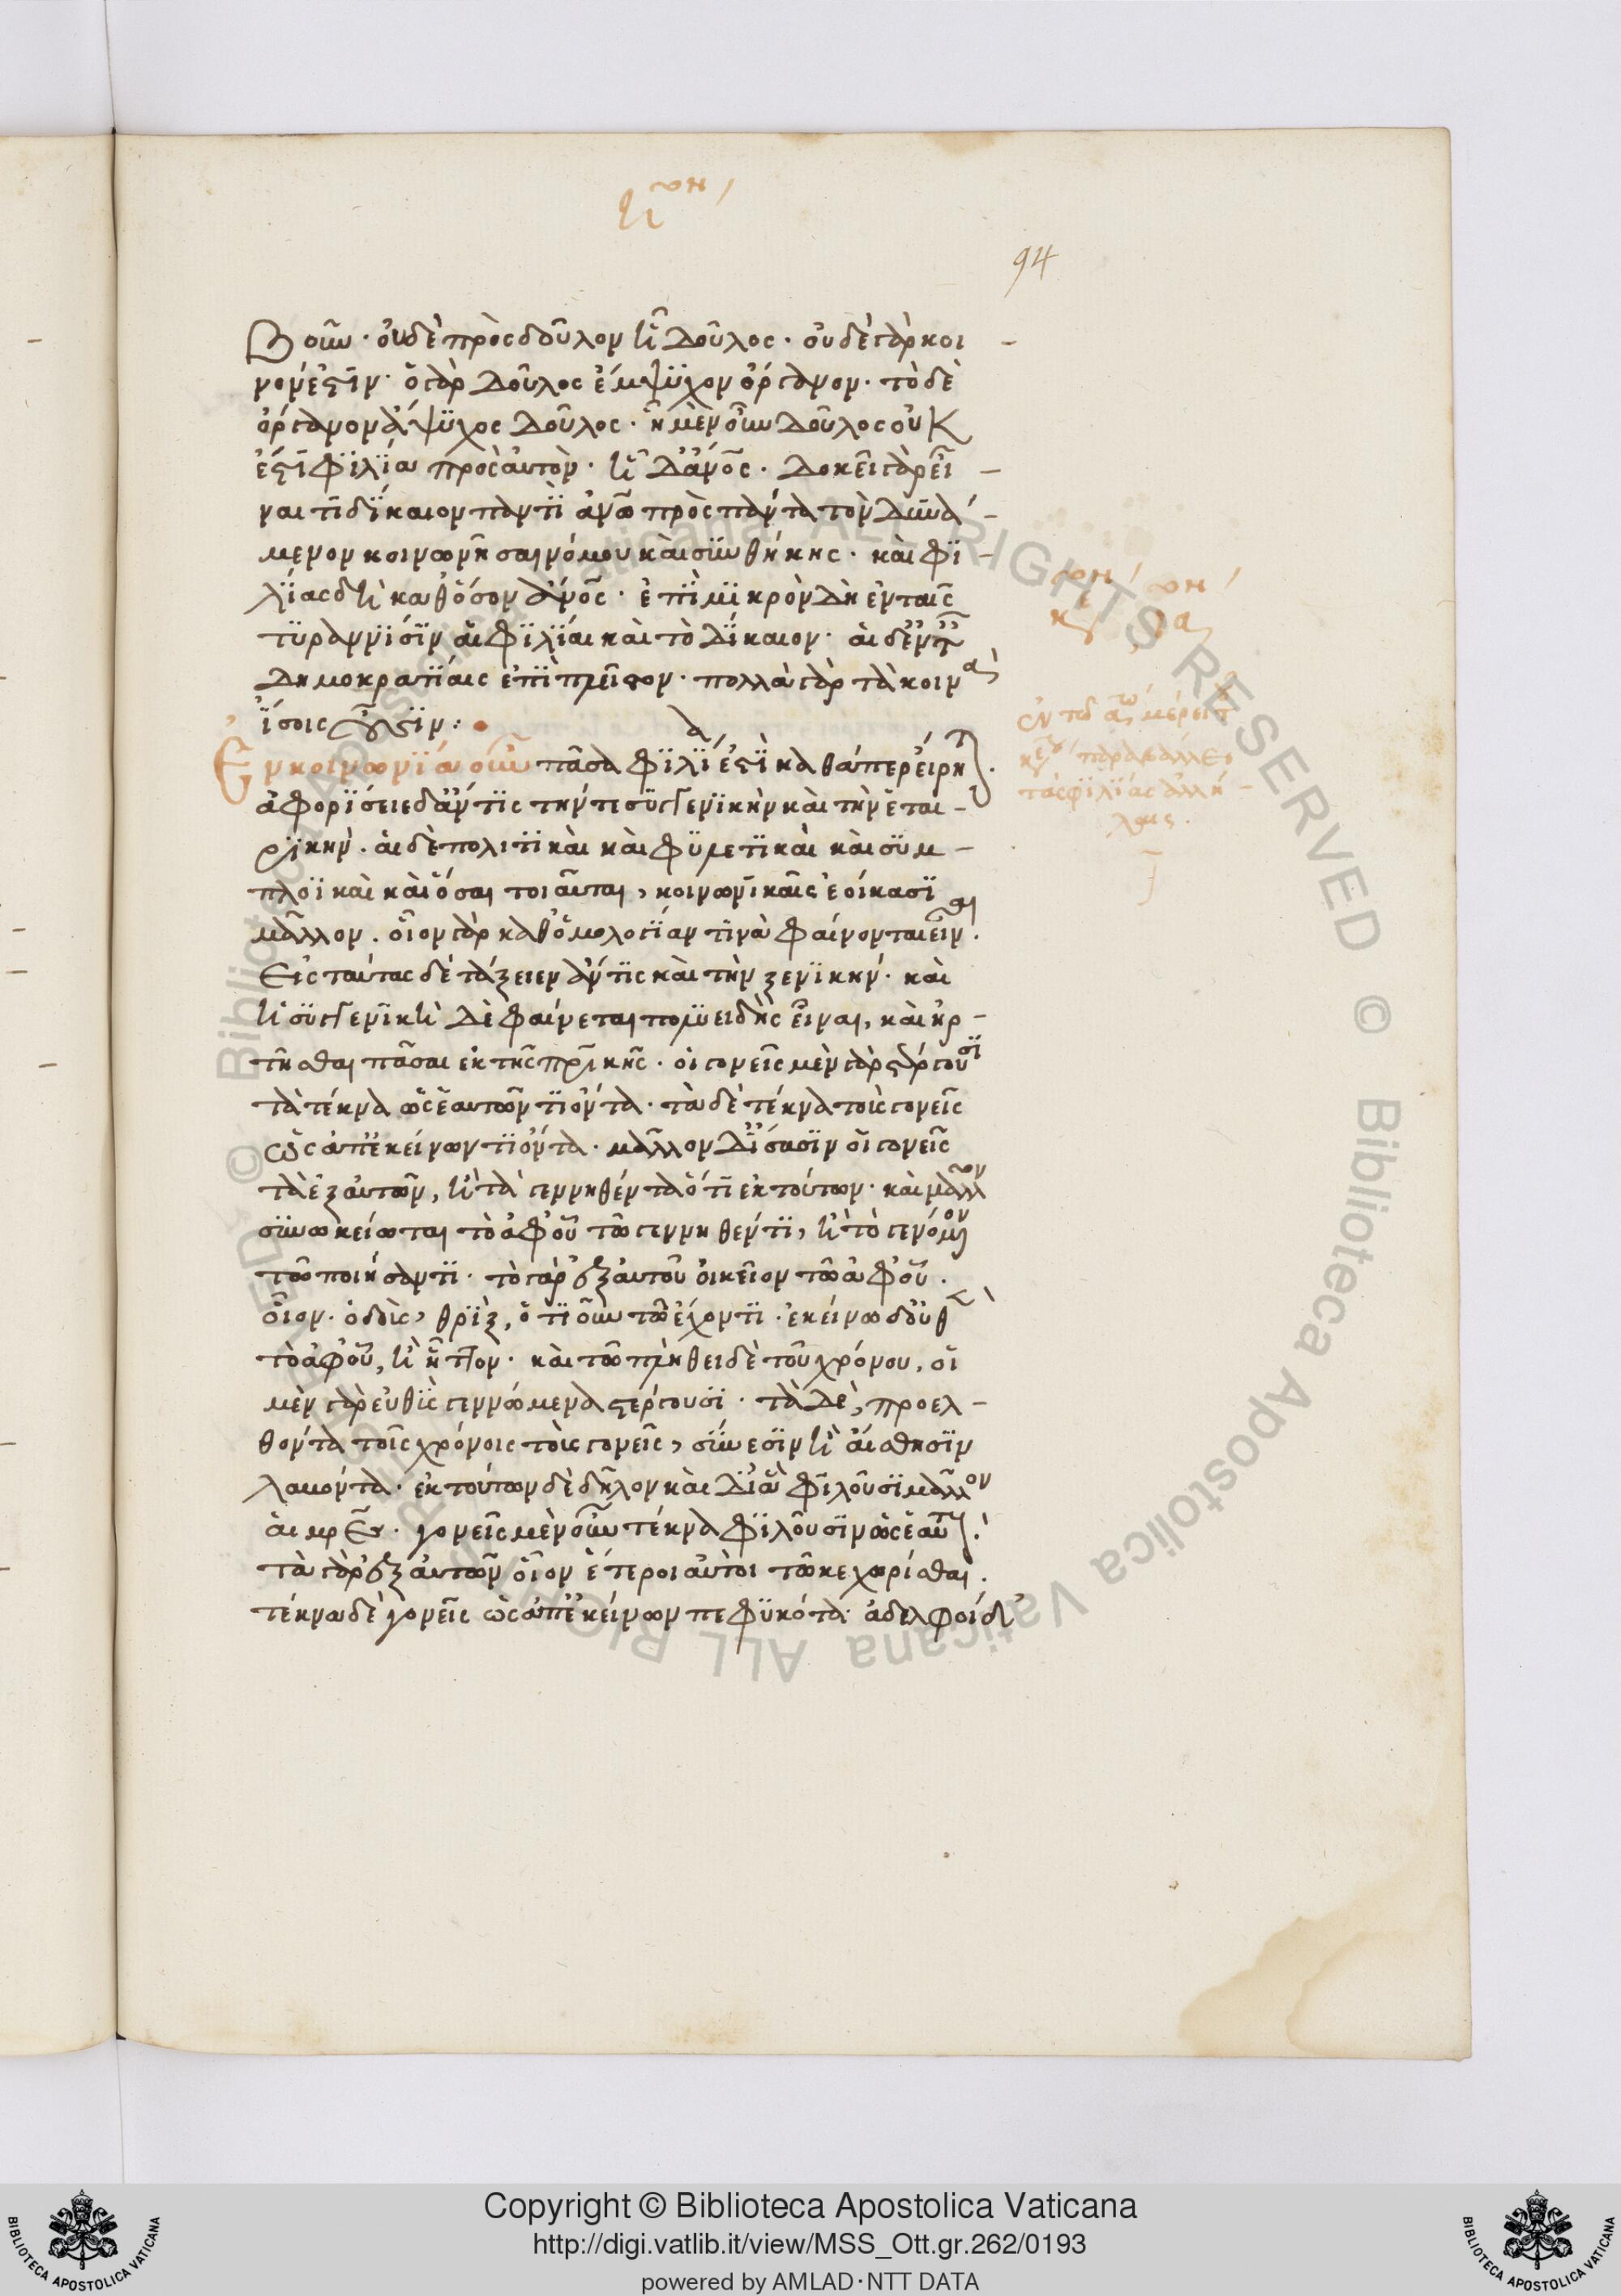 94
βοῦν· οὐδὲ πρὸς δοῦλον ἧ δοῦλος· οὐδὲ γὰρ κοι-
νόν ἐστιν· ὁ γὰρ δοῦλος ἔμψυχον ὄργανον· τὸ δὲ
ὄργανον ἄψυχος δοῦλος· ἧ μὲν οὖν δοῦλος οὐκ
ἐστὶ φιλία πρὸς αὐτὸν· ἧ δ' ἄνος· δοκεῖ γὰρ εἶ-
ναι τὶ δίκαιον παντὶ ἀνω πρὸς πάντα τὸν δυνά-
μενον κοινωνῆσαι νόμου καὶ συνθήκης· καὶ φι-
λίας δὴ καθ' ὅσον ἄνος· ἐπὶ μικρὸν δὴ ἐν ταῖς
τυραννίσιν αἱ φιλίαι καὶ τὸ δίκαιον· αἱ δ' ἐν τ
δημοκρατίαις ἐπὶ πλεῖστον· πολλὰ γὰρ τὰ κοινὰ
ἴσοις οὖσιν:
Ἐν κοινωνία οὖν πᾶσα φιλία ἐστὶ καθάπερ εἴρητ.
ἀφορίσειε δ' ἄν τις τήν τε συγγενικὴν καὶ τὴν ἑται-
ρικήν. αἱ δὲ πολιτικαὶ καὶ φυλετικαὶ καὶ συμ-
πλοϊκαὶ καὶ ὅσαι τοιαῦται, κοινωνικαῖς ἐοίκασι
μᾶλλον. οἷον γὰρ καθ' ὁμολογίαν τινὰ φαίνονται εἶν.
Εἰς ταύτας δὲ τάξειεν ἄν τις καὶ τὴν ξενικήν· καὶ
ἡ συγγενικὴ δὲ φαίνεται πολυειδὴς εἶναι, καὶ ἠρ-
τῆσθαι πᾶσαι ἐκ τῆς πρικῆς. οἱ γονεῖς μὲν γὰρ στέργουσι
τὰ τέκνα ὡς ἑαυτῶν τι ὄντα. τὰ δὲ τέκνα τοὺς γονεῖς
ὡς ἀπ' ἐκείνων τι ὄντα. μᾶλλον δ' ἴσασιν οἱ γονεῖς
τὰ ἐξ αὑτῶν, ἢ τὰ γεννηθέντα ὅτι ἐκ τούτων· καὶ μᾶλλον
συνωκείωται τὸ ἀφ' οὗ τῶ γεννηθέντι, ἢ τὸ γενόμον
τῶ ποιήσαντι· τὸ γὰρ ἐξ αὐτοῦ οἰκεῖον τῶ ἀφ' οὗ.
οἷον· ὀδοὺς, θρὶξ, ὅτι οὖν τῶ ἔχοντι· ἐκείνω δ' οὐθὲν
τὸ ἀφ' οὗ, ἢ ἧττον· καὶ τῶ πλήθει δὲ τοῦ χρόνου, οἱ
μὲν γὰρ εὐθὺς γεννώμενα στέργουσι· τὰ δὲ, προελ-
θόντα τοῖς χρόνοις τοὺς γονεῖς, σύνεσιν ἢ αἴσθησιν
λαβόντα· ἐκ τούτων δὲ δῆλον καὶ δι' ἃ φιλοῦσι μᾶλλον
αἱ μρες. γονεῖς μὲν οὖν τέκνα φιλοῦσιν ὡς ἑαυτούς.
τὰ γὰρ ἐξ αὐτῶν οἷον ἕτεροι αὐτοὶ τῶ κεχωρίσθαι.
τέκνα δὲ γονεῖς ὡς ἀπ' ἐκείνων πεφυκότα· ἀδελφοὶ δὲ
Copyright © Biblioteca Apostolica Vaticana
http://digi.vatlib.it/view/MSS_Ott.gr.262/0193
powered by AMLAD·NTT DATA
BIBLIOTECA APOSTOLICA VATICANA
BIBLIOTECA APOSTOLICA VATICANA
© Biblioteca Apostolica Vaticana ALL RIGHTS RESERVED © Biblioteca Apostolica Vaticana ALL RIGHTS RESERVED